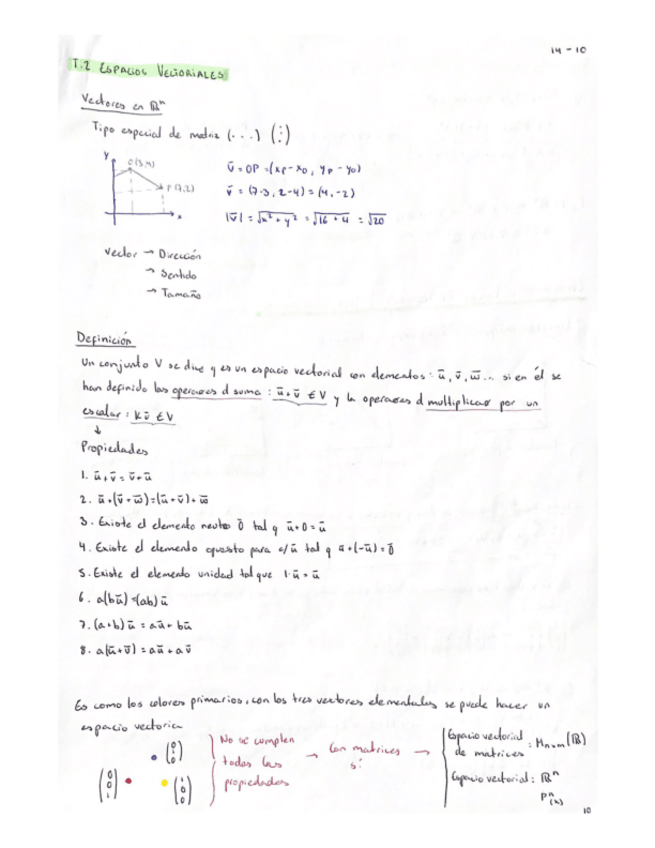 14-10
T.2 ESPACIOS VECTORIALES
Vectores en ℝⁿ
Tipo especial de matriz (···) (⋮)
y
O(3,4)
P(7,2)
x
ū = OP = (xp - xo, yp - yo)
v̄ = (7-3, 2-4) = (4,-2)
|v̄| = √x²+y² = √16+4 = √20
Vector → Dirección
→ Sentido
→ Tamaño
Definición
Un conjunto V se dice q es un espacio vectorial con elementos: ū, v̄, w̄... si en él se
han definido las operaciones d suma: ū+v̄ ∈ V y la operaciones d multiplicar por un
escalar: kū ∈ V
↓
Propiedades
1. ū+v̄ = v̄+ū
2. ū+(v̄+w̄)=(ū+v̄)+w̄
3. Existe el elemento neutro 0̄ tal q ū+0=ū
4. Existe el elemento opuesto para c/ū tal q ū+(-ū)=0̄
5. Existe el elemento unidad tal que 1·ū=ū
6. a(bū)=(ab)ū
7. (a+b)ū = aū+bū
8. a(ū+v̄) = aū+av̄
Es como los colores primarios, con los tres vectores elementales se puede hacer un
espacio vectorial
(0 1 0)
(0 0 1)
(1 0 0)
No se cumplen
todas las
propiedades
→ Con matrices →
sí
Espacio vectorial
de matrices : Mnxm(ℝ)
Espacio vectorial: ℝⁿ
Pⁿ(x)
10